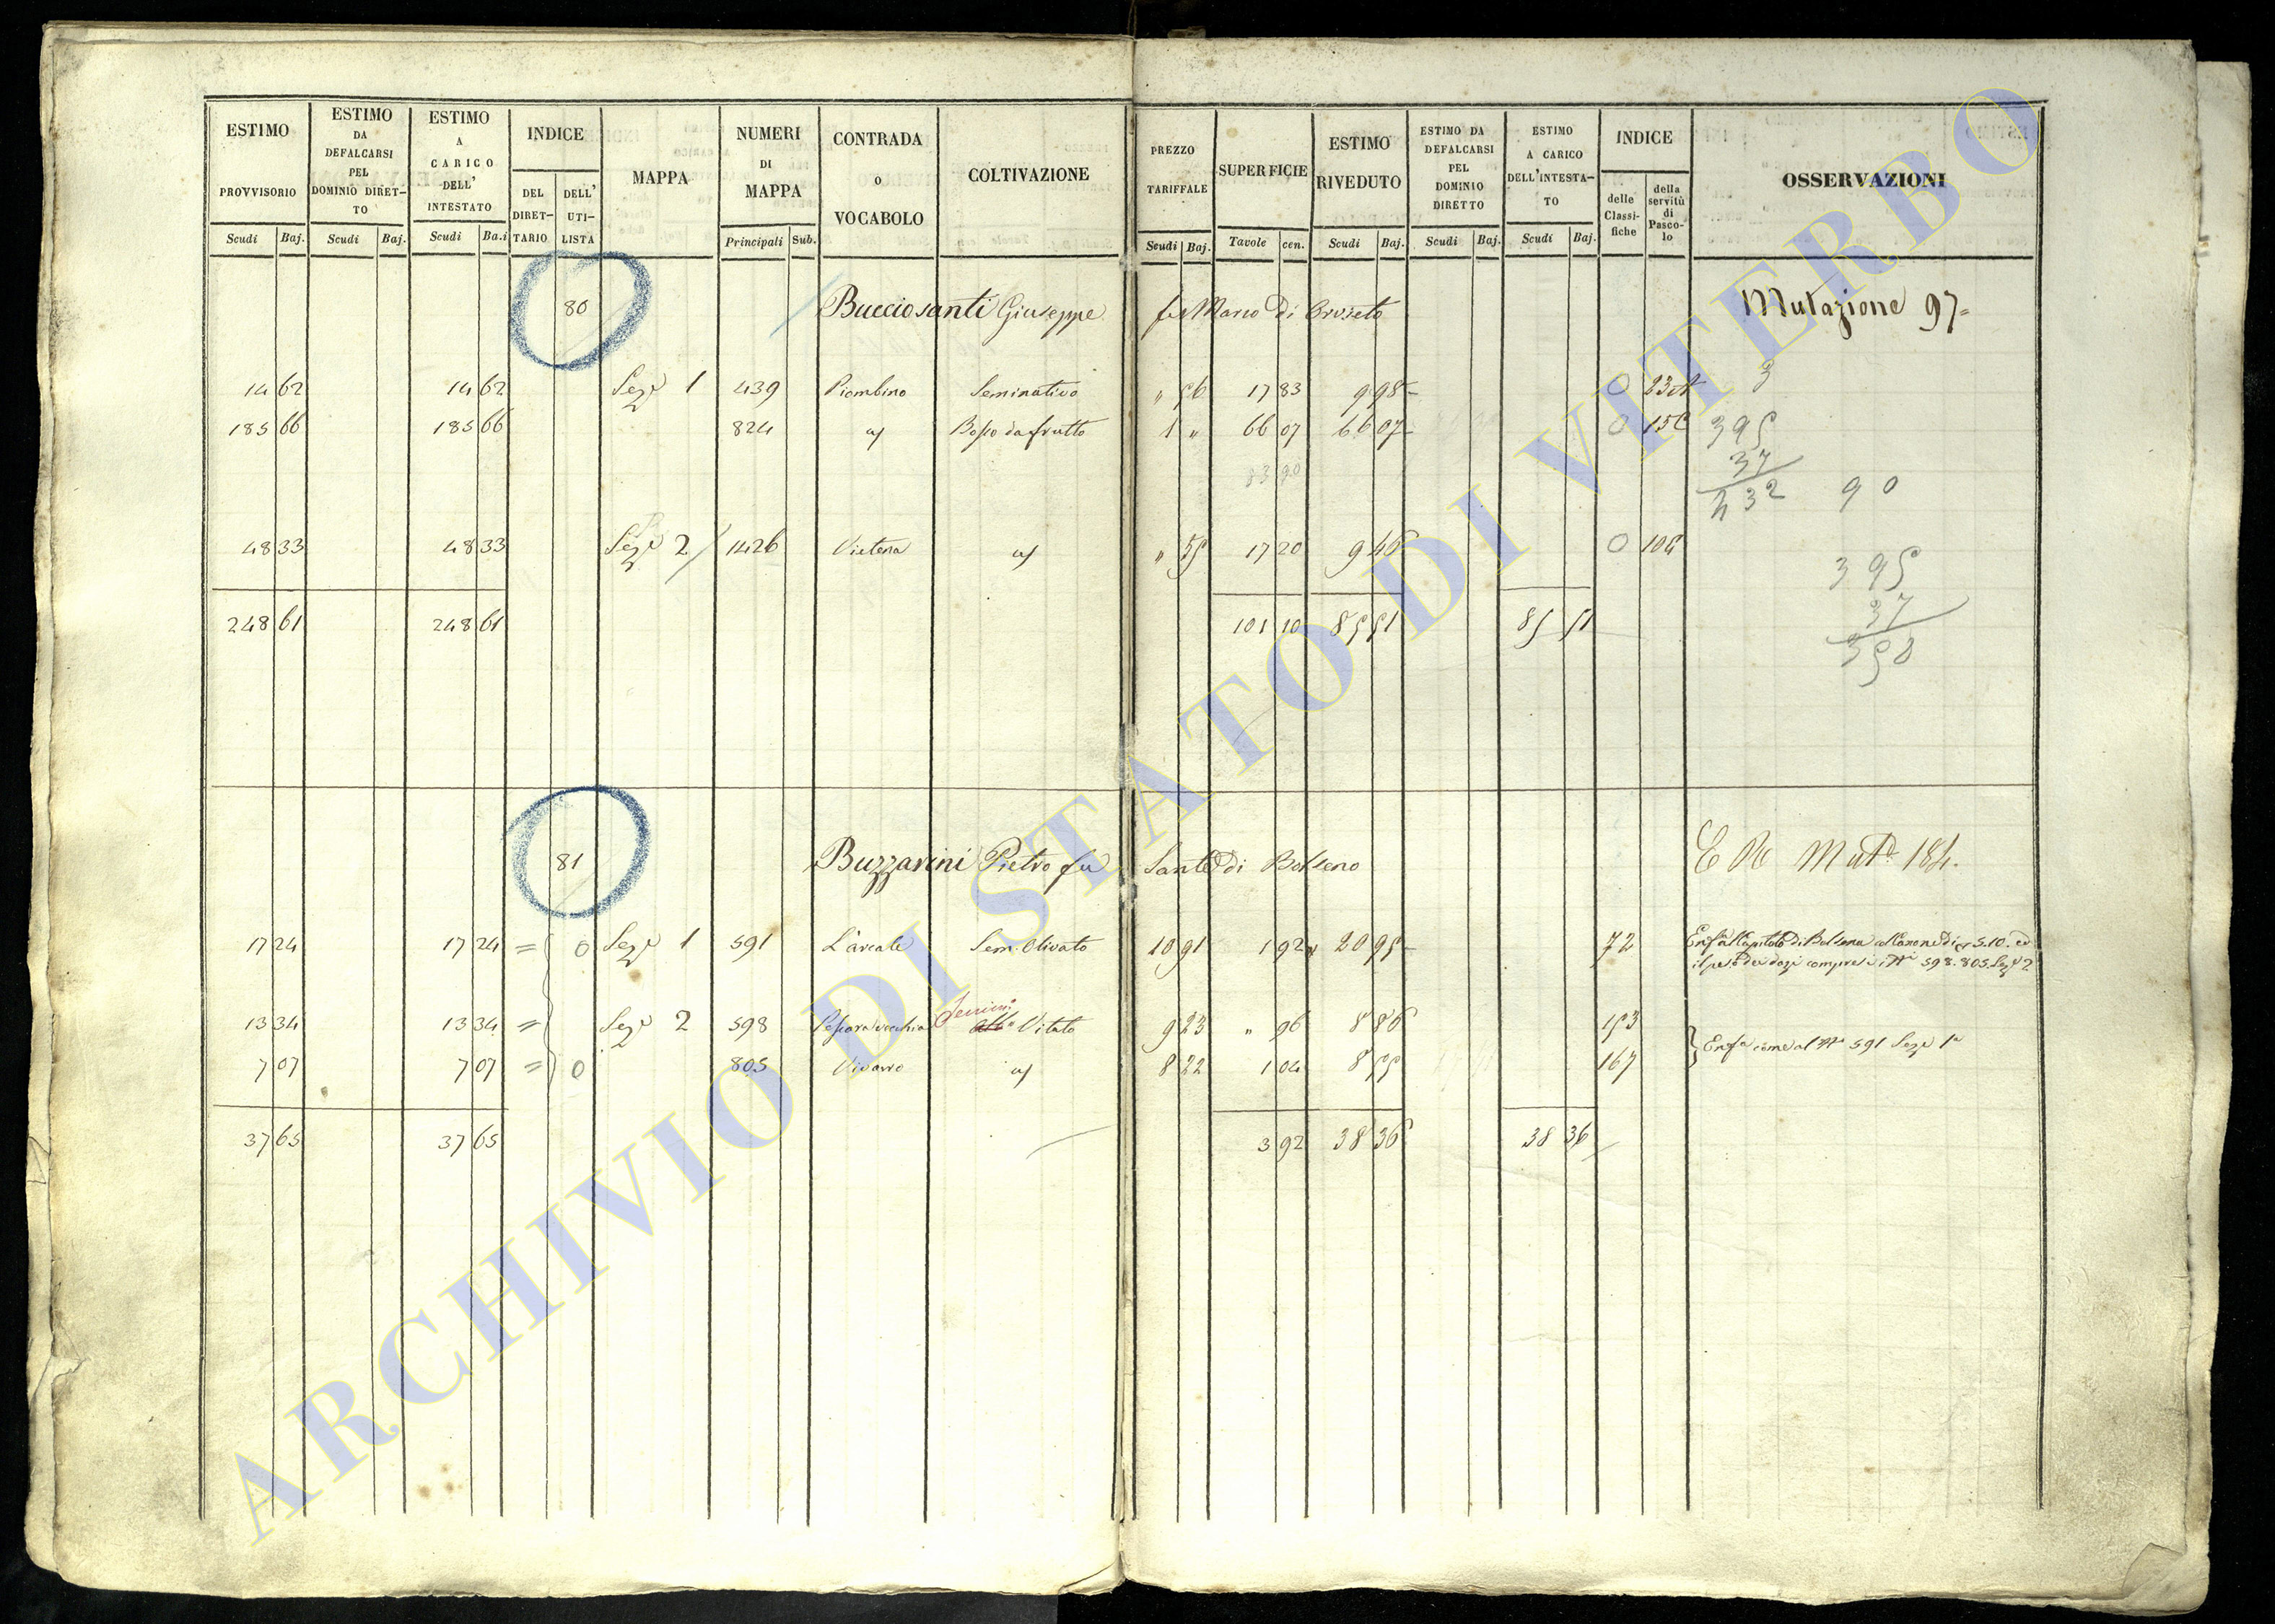 ESTIMO PROVVISORIO Scudi Baj.
ESTIMO DA DEFALCARSI PEL DOMINIO DIRETTO Scudi Baj.
ESTIMO A CARICO DELL' INTESTATO Scudi Ba.i
INDICE DEL DIRETTARIO DELL' UTILISTA
MAPPA
NUMERI DI MAPPA Principali Sub.
CONTRADA O VOCABOLO
COLTIVAZIONE
PREZZO TARIFFALE Scudi Baj.
SUPERFICIE Tavole cen.
ESTIMO RIVEDUTO Scudi Baj.
ESTIMO DA DEFALCARSI PEL DOMINIO DIRETTO Scudi Baj.
ESTIMO A CARICO DELL'INTESTATO Scudi Baj.
INDICE delle Classifiche della servitù di Pascolo
OSSERVAZIONI
80 Bucciosanti Giuseppe fu Marco di Orvieto Mutazione 97=
3
14 62 14 62 Sez.e 1 439 Piombino Seminativo " 56 17 83 9 98 0
185 66 185 66 824 Bosco da frutto 1 " 66 07 66 07 0 15
395
37
432 90
83 90
48 33 48 33 Sez.e 2 1426 Vietena " 55 17 20 9 46 0
395
37
358
248 61 248 61 101 10 85 51 85 51
81 Buzzarini Pietro fu Sante di Bolseno Mut.e 184.
17 24 17 24 = 0 Sez.e 1 591 L'arcale Sem. Olivato 10 91 1 92 20 95 72 Enf.a al Capitolo di Bolsena 5.10. ed
598. 805. Sez.e 2
13 34 13 34 = Sez.e 2 598 Vitato 9 23 " 96 8 86 153
Enf.a come al N.o 591 Sez.e 1a
7 07 7 07 = 0 805 Vivarro 8 22 1 04 8 55 167
37 65 37 65 3 92 38 36 38 36
ARCHIVIO DI STATO DI VITERBO